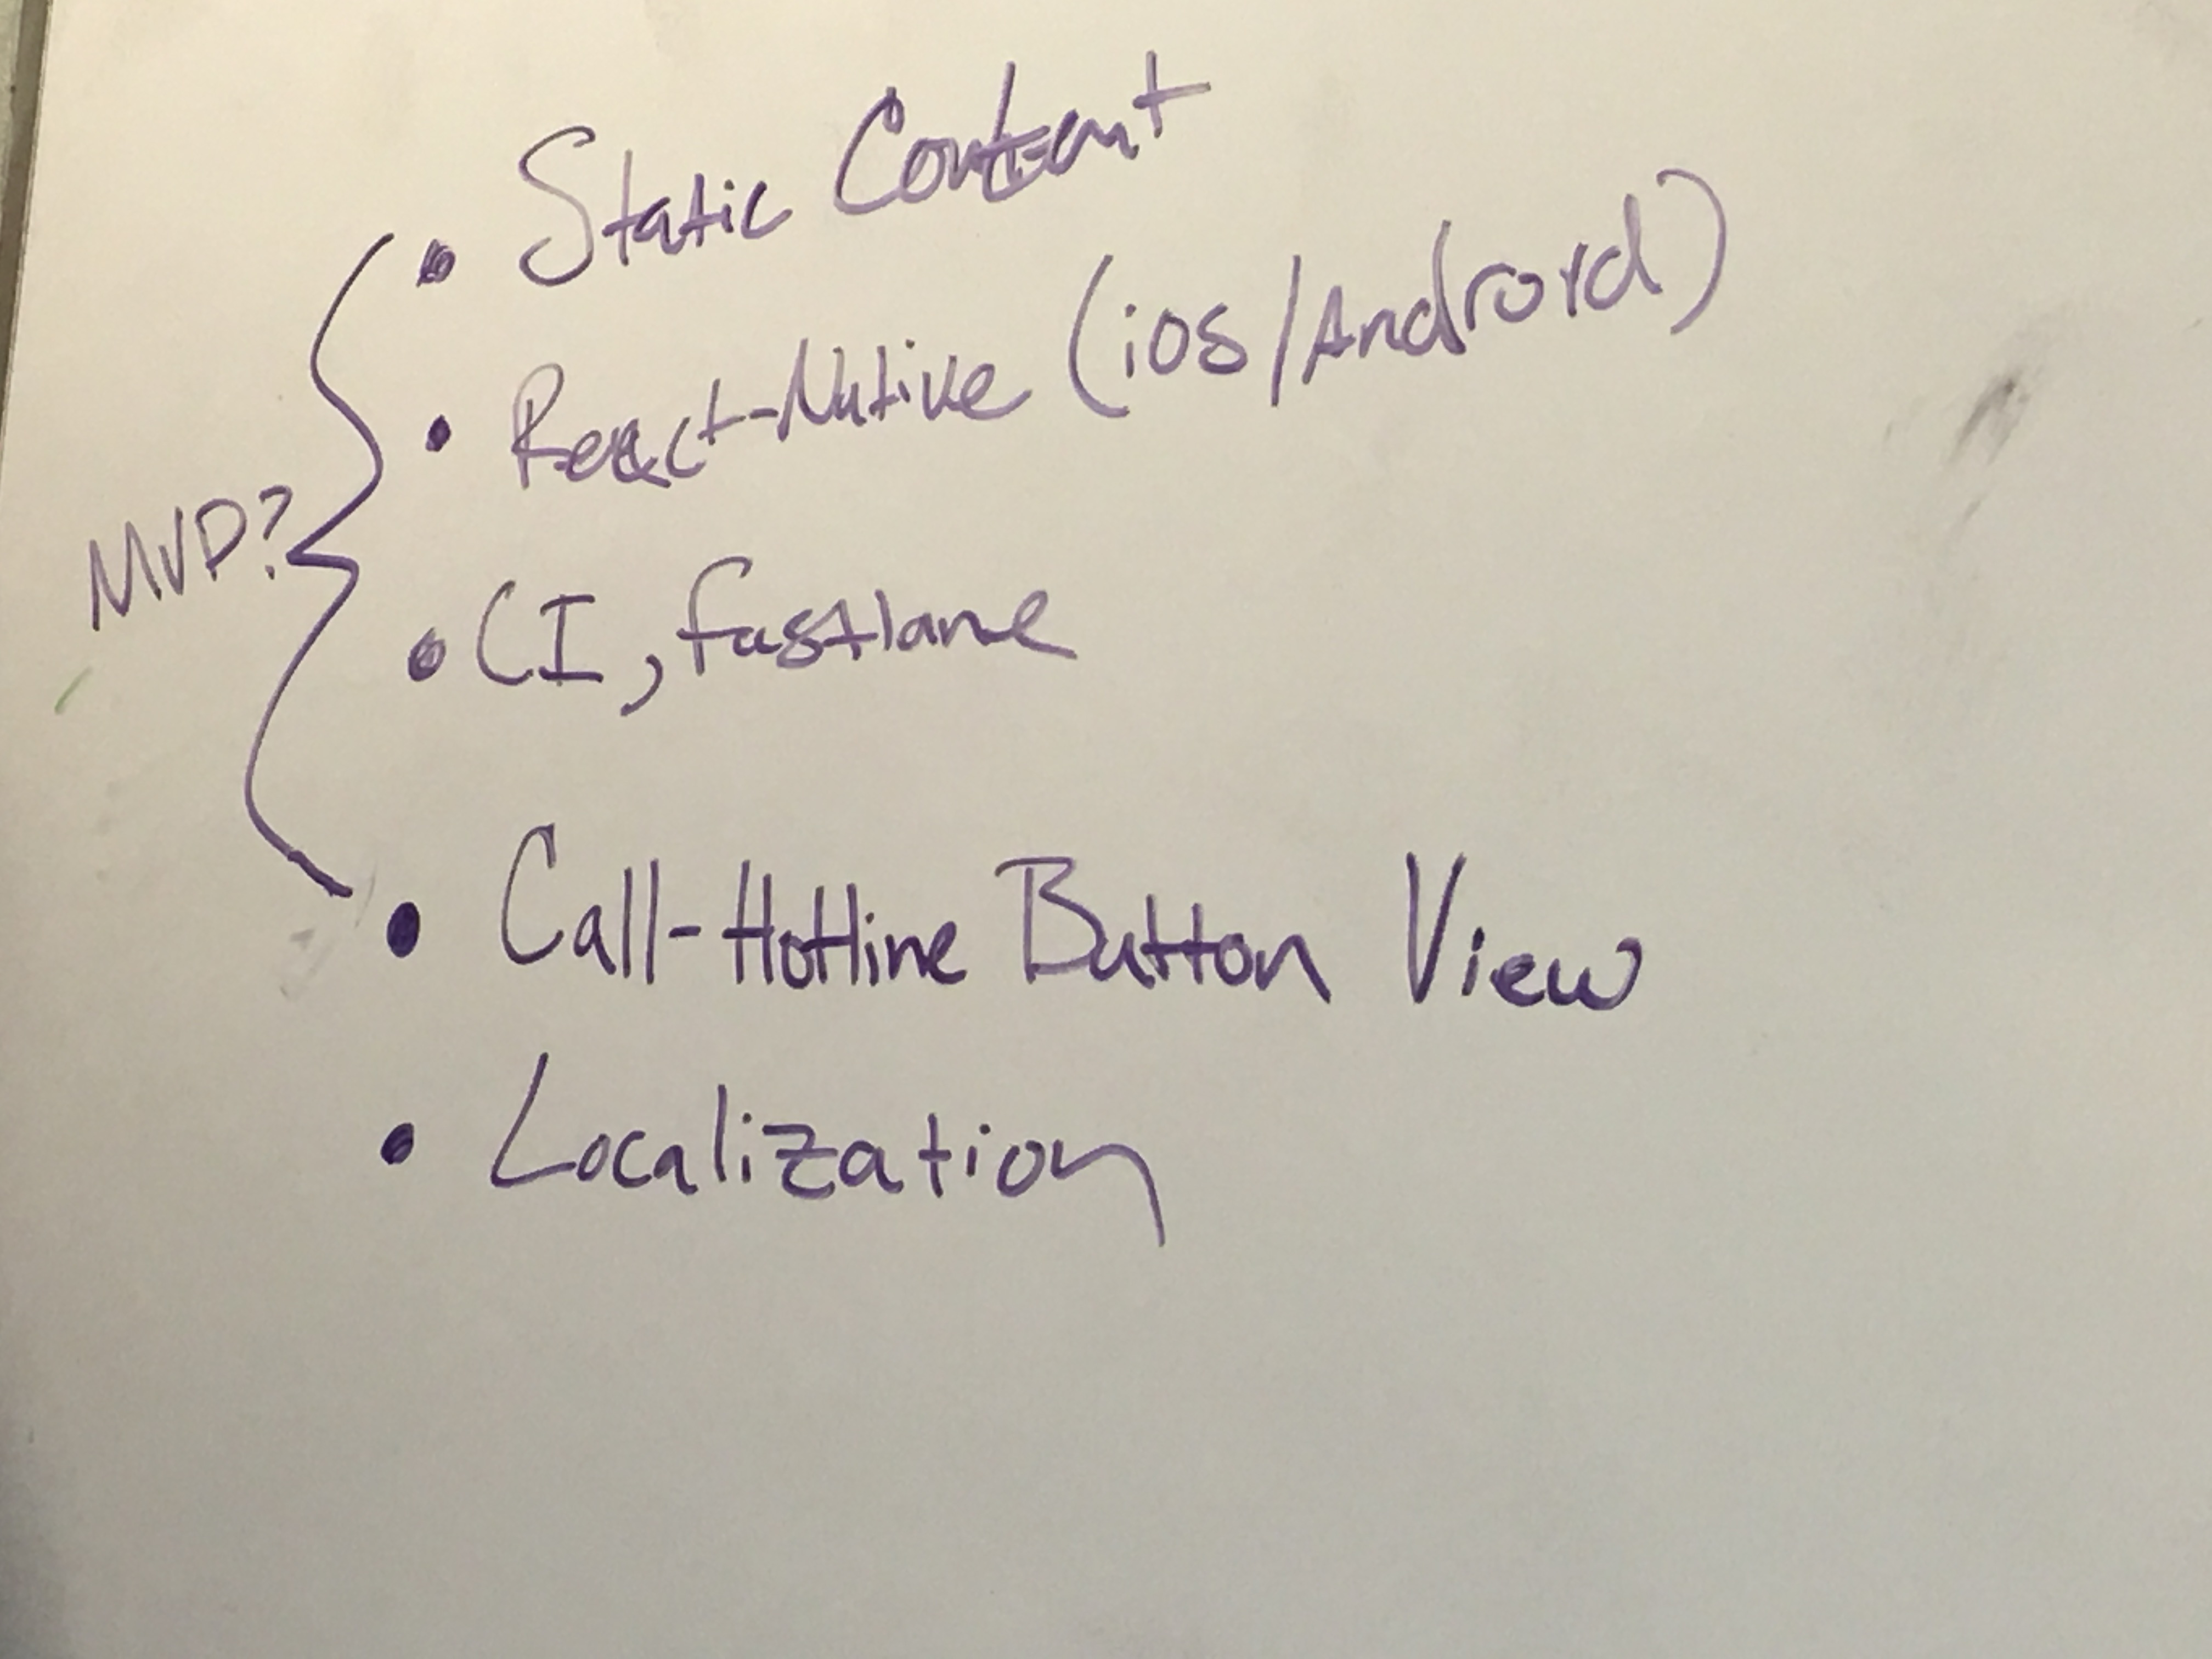 • Static Content
• React-Native (iOS/Android)
MVP?
• CI, fastlane
• Call-Hotline Button View
• Localization